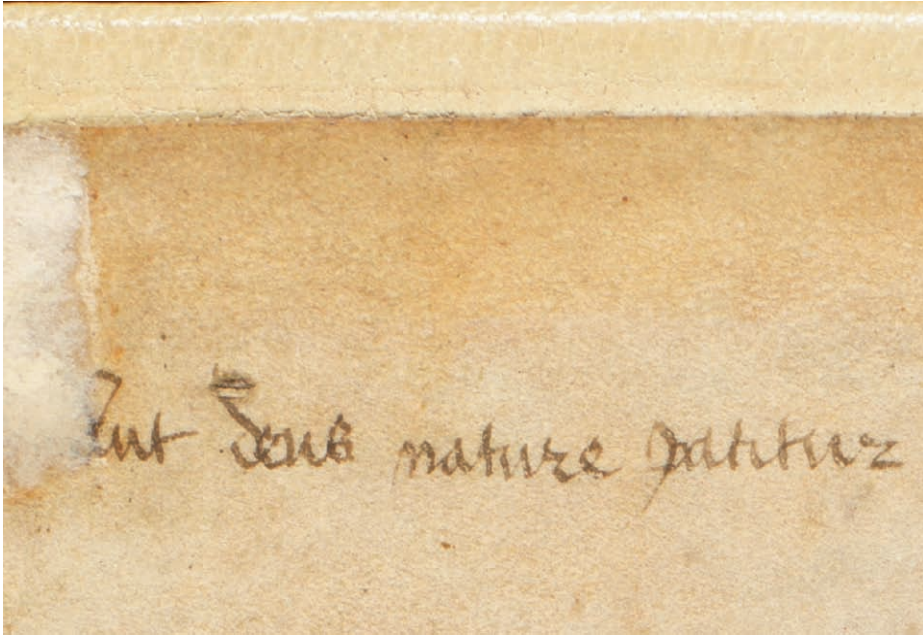 Aut deus nature patitur